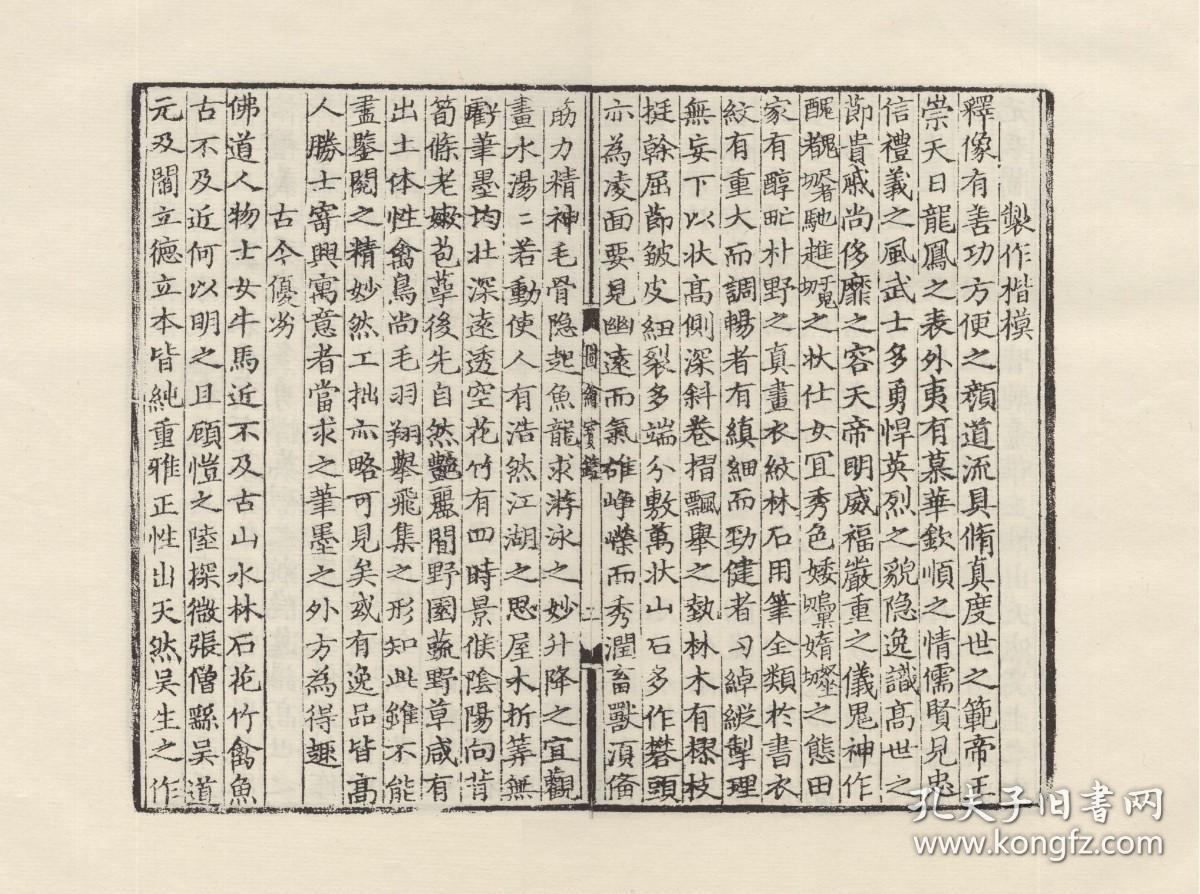 製作楷模
釋像有善功方便之顏道流具脩真度世之範帝王
崇天日龍鳳之表外夷有慕華欽順之情儒賢見忠
信禮義之風武士多勇悍英烈之貌隐逸識高世之
節貴戚尚侈靡之容天帝明威福嚴重之儀鬼神作
醜䰩馳趡之状仕女冝秀色婑媠之態田
家有醇甿朴野之真畫衣紋林石用筆全類於書衣
紋有重大而調暢者有縝細而勁健者勾綽縱掣理
無妄下以状高側深斜卷摺飄舉之勢林木有樛枝
挺幹屈節皴皮紐裂多端分敷萬状山石多作礬頭
亦為凌面要見幽遠而氣雄崢嶸而秀潤畜獸湏俻
圖繪寶鑑
二
筋力精神毛骨隐起魚龍求游泳之妙升降之宜觀
畫水湯二若動使人有浩然江湖之思屋木折筭無
虧筆墨均壮深遠透空花竹有四時景候陰陽向背
筍條老嫩苞萼後先自然艷麗閒野園蔬野草咸有
出土体性禽鳥尚毛羽翔舉飛集之形知此雖不能
盡鑒閱之精妙然工拙亦略可見矣或有逸品皆高
人勝士寄興寓意者當求之筆墨之外方為得趣
古今優劣
佛道人物士女牛馬近不及古山水林石花竹禽魚
古不及近何以明之且顧愷之陸探微張僧繇吴道
元及閻立德立本皆純重雅正性出天然吴生之作
孔夫子旧书网
www.kongfz.com